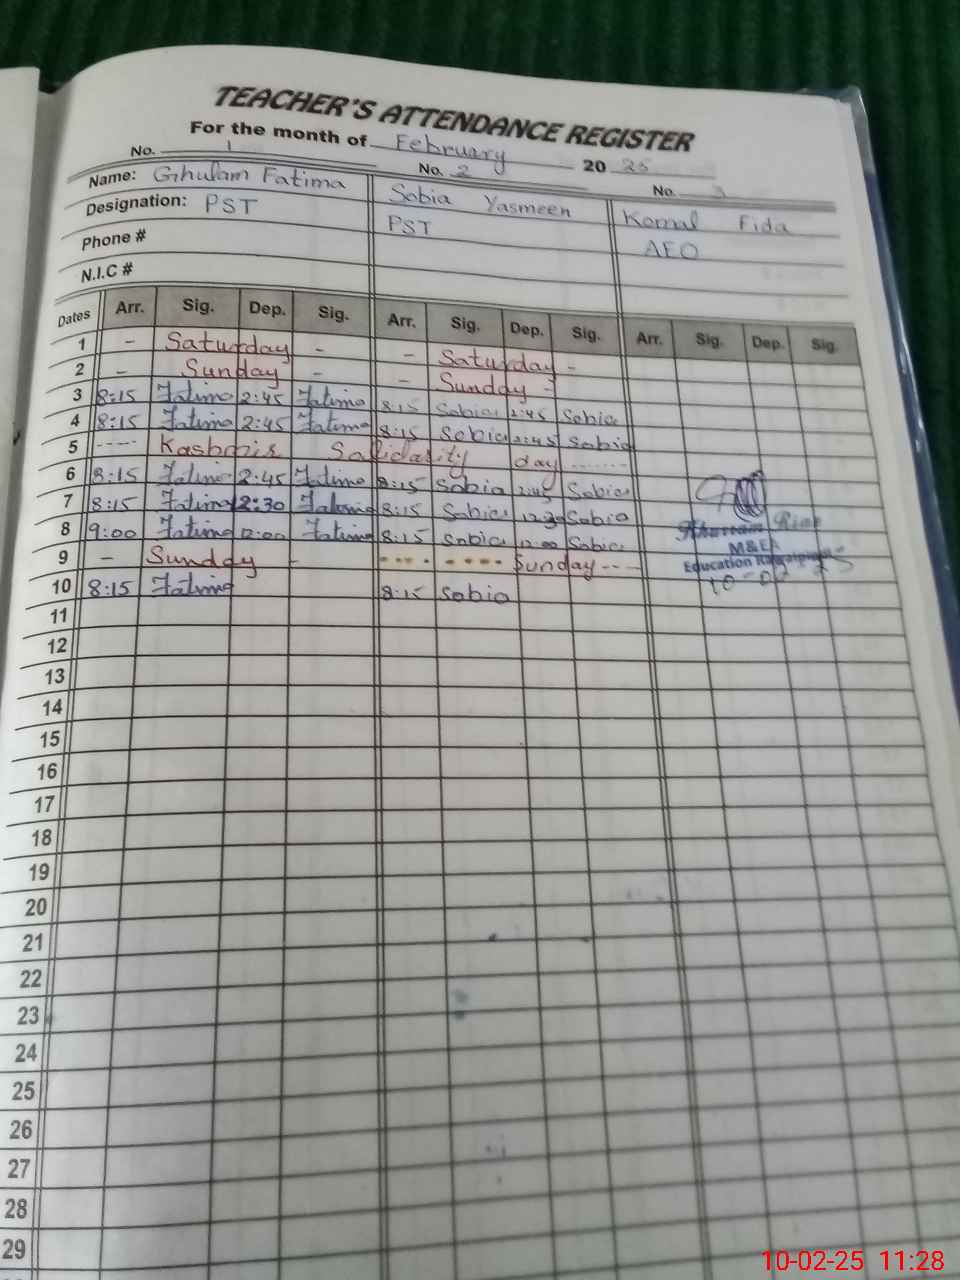 TEACHER'S ATTENDANCE REGISTER
For the month of February 2025
No. 1 No. 2 No. 3
Name: Ghulam Fatima Sobia Yasmeen Komal Fida
Designation: PST PST AEO
Phone #
N.I.C #
Dates Arr. Sig. Dep. Sig. Arr. Sig. Dep. Sig. Arr. Sig. Dep. Sig.
1 - Saturday - - Saturday -
2 - Sunday - - Sunday -
3 8:15 Fatima 2:45 Fatima 8:15 Sobia 2:45 Sobia
4 8:15 Fatima 2:45 Fatima 8:15 Sobia 2:45 Sobia
5 ---- Kashmir Solidarity day ------
6 8:15 Fatima 2:45 Fatima 8:15 Sobia 2:45 Sobia
7 8:15 Fatima 12:30 Fatima 8:15 Sobia 12:30 Sobia
8 9:00 Fatima 12:00 Fatima 8:15 Sobia 12:00 Sobia
9 - Sunday - ---- ---- Sunday ----
M&EA
Education
10 8:15 Fatima 8:15 Sobia
10-02-25
11
12
13
14
15
16
17
18
19
20
21
22
23
24
25
26
27
28
29
10-02-25 11:28